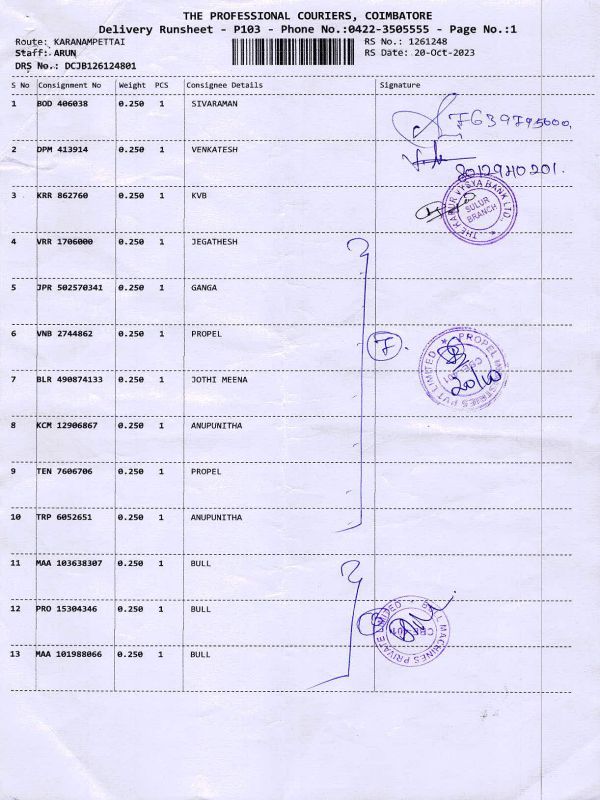 THE PROFESSIONAL COURIERS, COIMBATORE
Delivery Runsheet - P103 - Phone No.:0422-3505555 - Page No.:1
Route: KARANAMPETTAI RS No.: 1261248
Staff: ARUN RS Date: 20-Oct-2023
DRS No.: DCJB126124801
S No Consignment No Weight PCS Consignee Details Signature
1 BOD 406038 0.250 1 SIVARAMAN
2 DPM 413914 0.250 1 VENKATESH
3 KRR 862760 0.250 1 KVB
THE KARUR VYSYA BANK LTD. SULUR BRANCH
4 VRR 1706000 0.250 1 JEGATHESH
5 JPR 502570341 0.250 1 GANGA
6 VNB 2744862 0.250 1 PROPEL
7
PROPEL INDUSTRIES PVT LIMITED
20/10
7 BLR 490874133 0.250 1 JOTHI MEENA
8 KCM 12906867 0.250 1 ANUPUNITHA
9 TEN 7606706 0.250 1 PROPEL
10 TRP 6052651 0.250 1 ANUPUNITHA
11 MAA 103638307 0.250 1 BULL
12 PRO 15304346 0.250 1 BULL
BULL MACHINES PRIVATE LIMITED
13 MAA 101988066 0.250 1 BULL